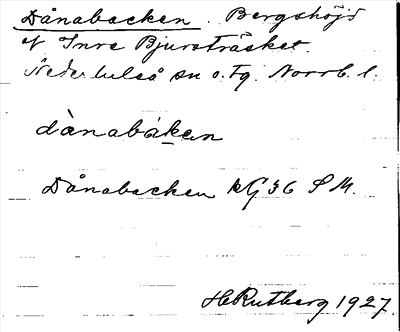 Dånabacken. Bergshöjd
af Inre Bjursträsket.
Nederluleå sn o. Tg. Norrb. l.
dånabàken
Dånabacken kG36 S M.
H Rutberg 1927.